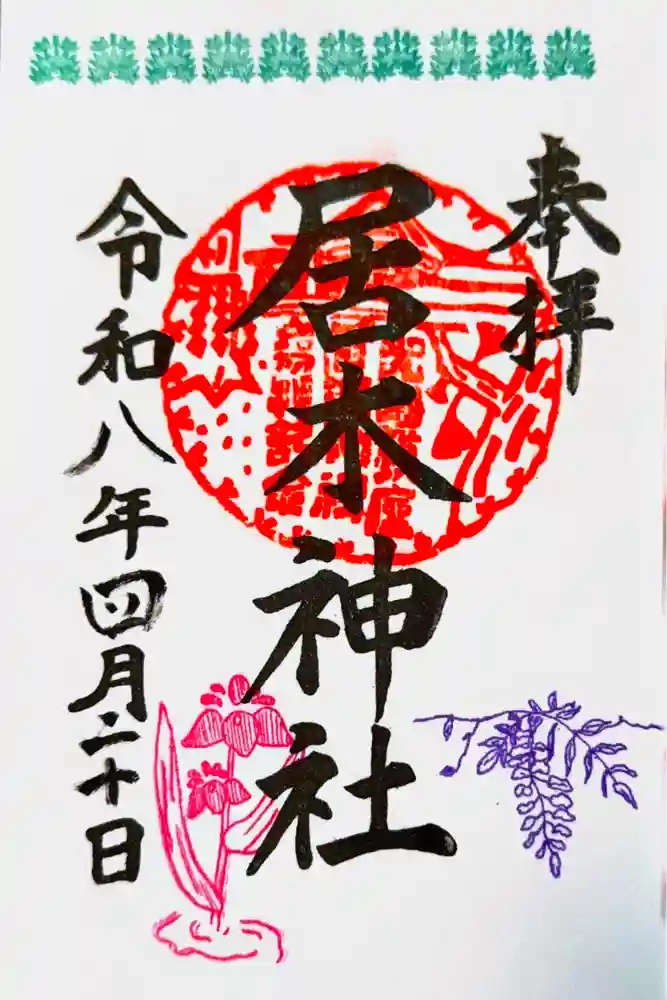 奉拝
居木神社
令和八年四月二十日